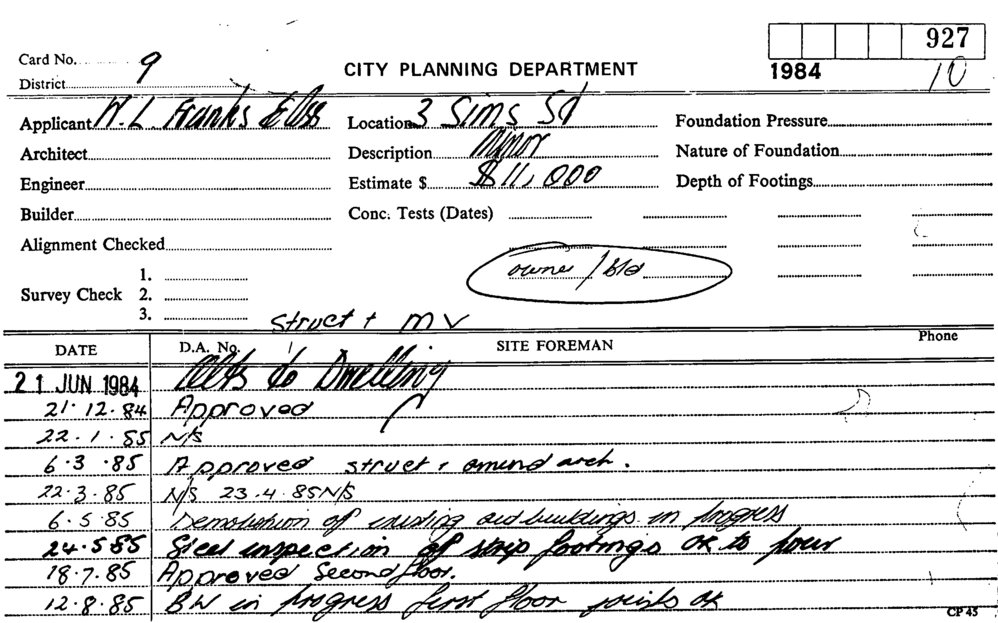 927
Card No. 9
CITY PLANNING DEPARTMENT
1984
10
District
Applicant N. L. Franks & Oss Location 3 Sims St Foundation Pressure
Architect Description Minor Nature of Foundation
Engineer Estimate $ $11,000 Depth of Footings
Builder Conc. Tests (Dates)
Alignment Checked
owner / bld
1.
Survey Check 2.
3.
struct + MV
DATE D.A. No. SITE FOREMAN Phone
21 JUN 1984 Alts to Dwelling
21.12.84 Approved
22.1.85 N/S
6.3.85 Approved struct + amend arch.
22.3.85 N/S 23.4.85 N/S
6.5.85 Demolition of existing old buildings in progress
24.5.85 Steel inspection of strip footings OK to pour
18.7.85 Approved Second floor.
12.8.85 BW in progress first floor joists ok
CP 45